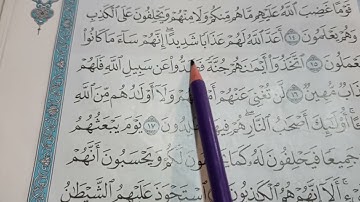 قَوْمًا غَضِبَ ٱللَّهُ عَلَيْهِم مَّا هُم مِّنكُمْ وَلَا مِنْهُمْ وَيَحْلِفُونَ عَلَى ٱلْكَذِبِ
وَهُمْ يَعْلَمُونَ ١٤ أَعَدَّ ٱللَّهُ لَهُمْ عَذَابًا شَدِيدًا ۖ إِنَّهُمْ سَآءَ مَا كَانُوا۟
يَعْمَلُونَ ١٥ ٱتَّخَذُوٓا۟ أَيْمَـٰنَهُمْ جُنَّةً فَصَدُّوا۟ عَن سَبِيلِ ٱللَّهِ فَلَهُمْ
مُّهِينٌ ١٦ لَّن تُغْنِىَ عَنْهُمْ أَمْوَٰلُهُمْ وَلَآ أَوْلَـٰدُهُم مِّنَ ٱللَّهِ
أُو۟لَـٰٓئِكَ أَصْحَـٰبُ ٱلنَّارِ ۖ هُمْ فِيهَا خَـٰلِدُونَ ١٧ يَوْمَ يَبْعَثُهُمُ
جَمِيعًا فَيَحْلِفُونَ لَهُۥ كَمَا يَحْلِفُونَ لَكُمْ ۖ وَيَحْسَبُونَ أَنَّهُمْ
أَلَآ إِنَّهُمْ هُمُ ٱلْكَـٰذِبُونَ ١٨ ٱسْتَحْوَذَ عَلَيْهِمُ ٱلشَّيْطَـٰنُ